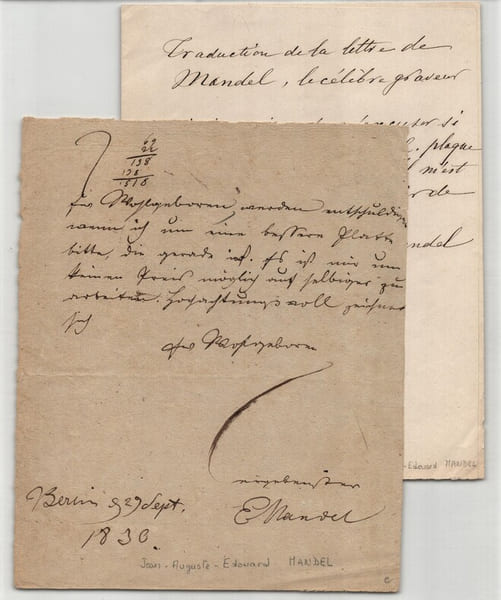 Traduction de la lettre de
Mandel, le célèbre graveur
si
plaque
m'est
de
Mandel
- Edouard MANDEL
69
22
138
138
1518
Ew Wohlgeboren werden entschuldigen
wenn ich um eine bessere Platte
bitte, die gerade ist. Es ist mir um
keinen Preis möglich auf selbiger zu
arbeiten. Hochachtungsvoll zeichnet
sich
Ew Wohlgeboren
ergebenster
EMandel
Berlin d 29 Sept.
1836
Jean - Auguste - Edouard MANDEL